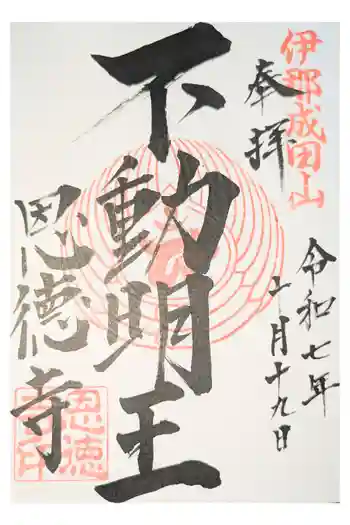 伊那成田山
奉拝
令和七年
十月十九日
不動明王
恩德寺
恩徳
寺印